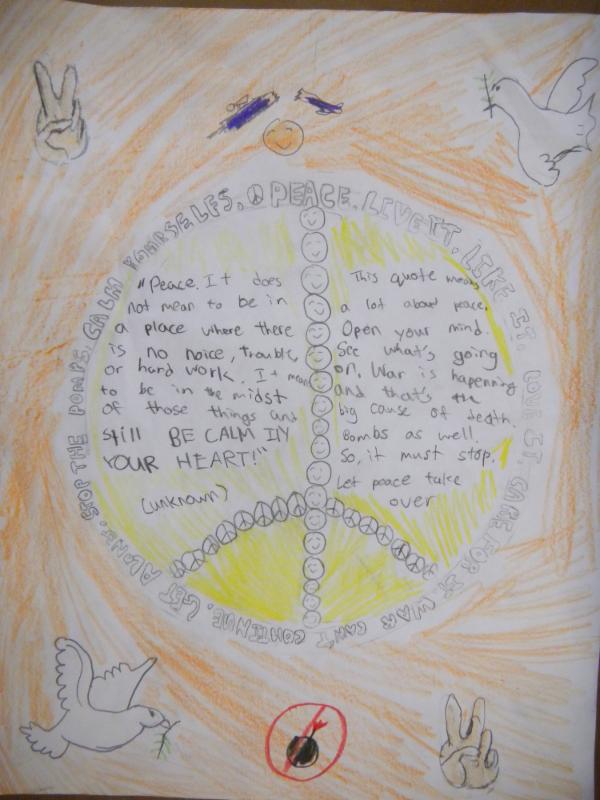 PEACE. LIVE IT. LIKE IT. LOVE IT. CARE FOR IT. WAR CAN'T CONTINUE. GET ALONG. STOP THE BOMBS. CALM YOURSELFS.
"Peace. It does
not mean to be in
a place where there
is no noice, trouble
or hard work. It mean
to be in the midst
of those things and
still BE CALM IN
YOUR HEART!"
(unknown)
This quote means
a lot about peace.
Open your mind.
See what's going
on. War is happenning
and that's the
big cause of death.
Bombs as well.
So, it must stop.
Let peace take
over